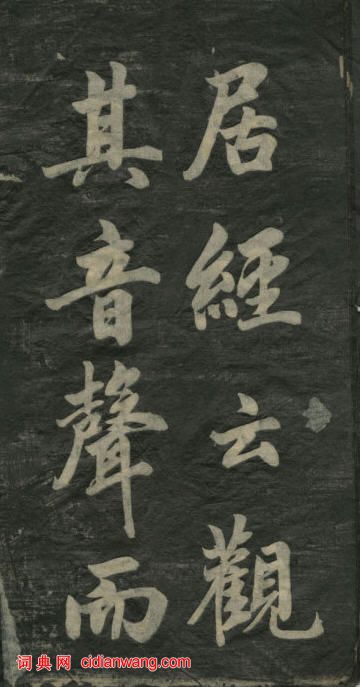 居經云觀
其音聲而
词典网 cidianwang.com